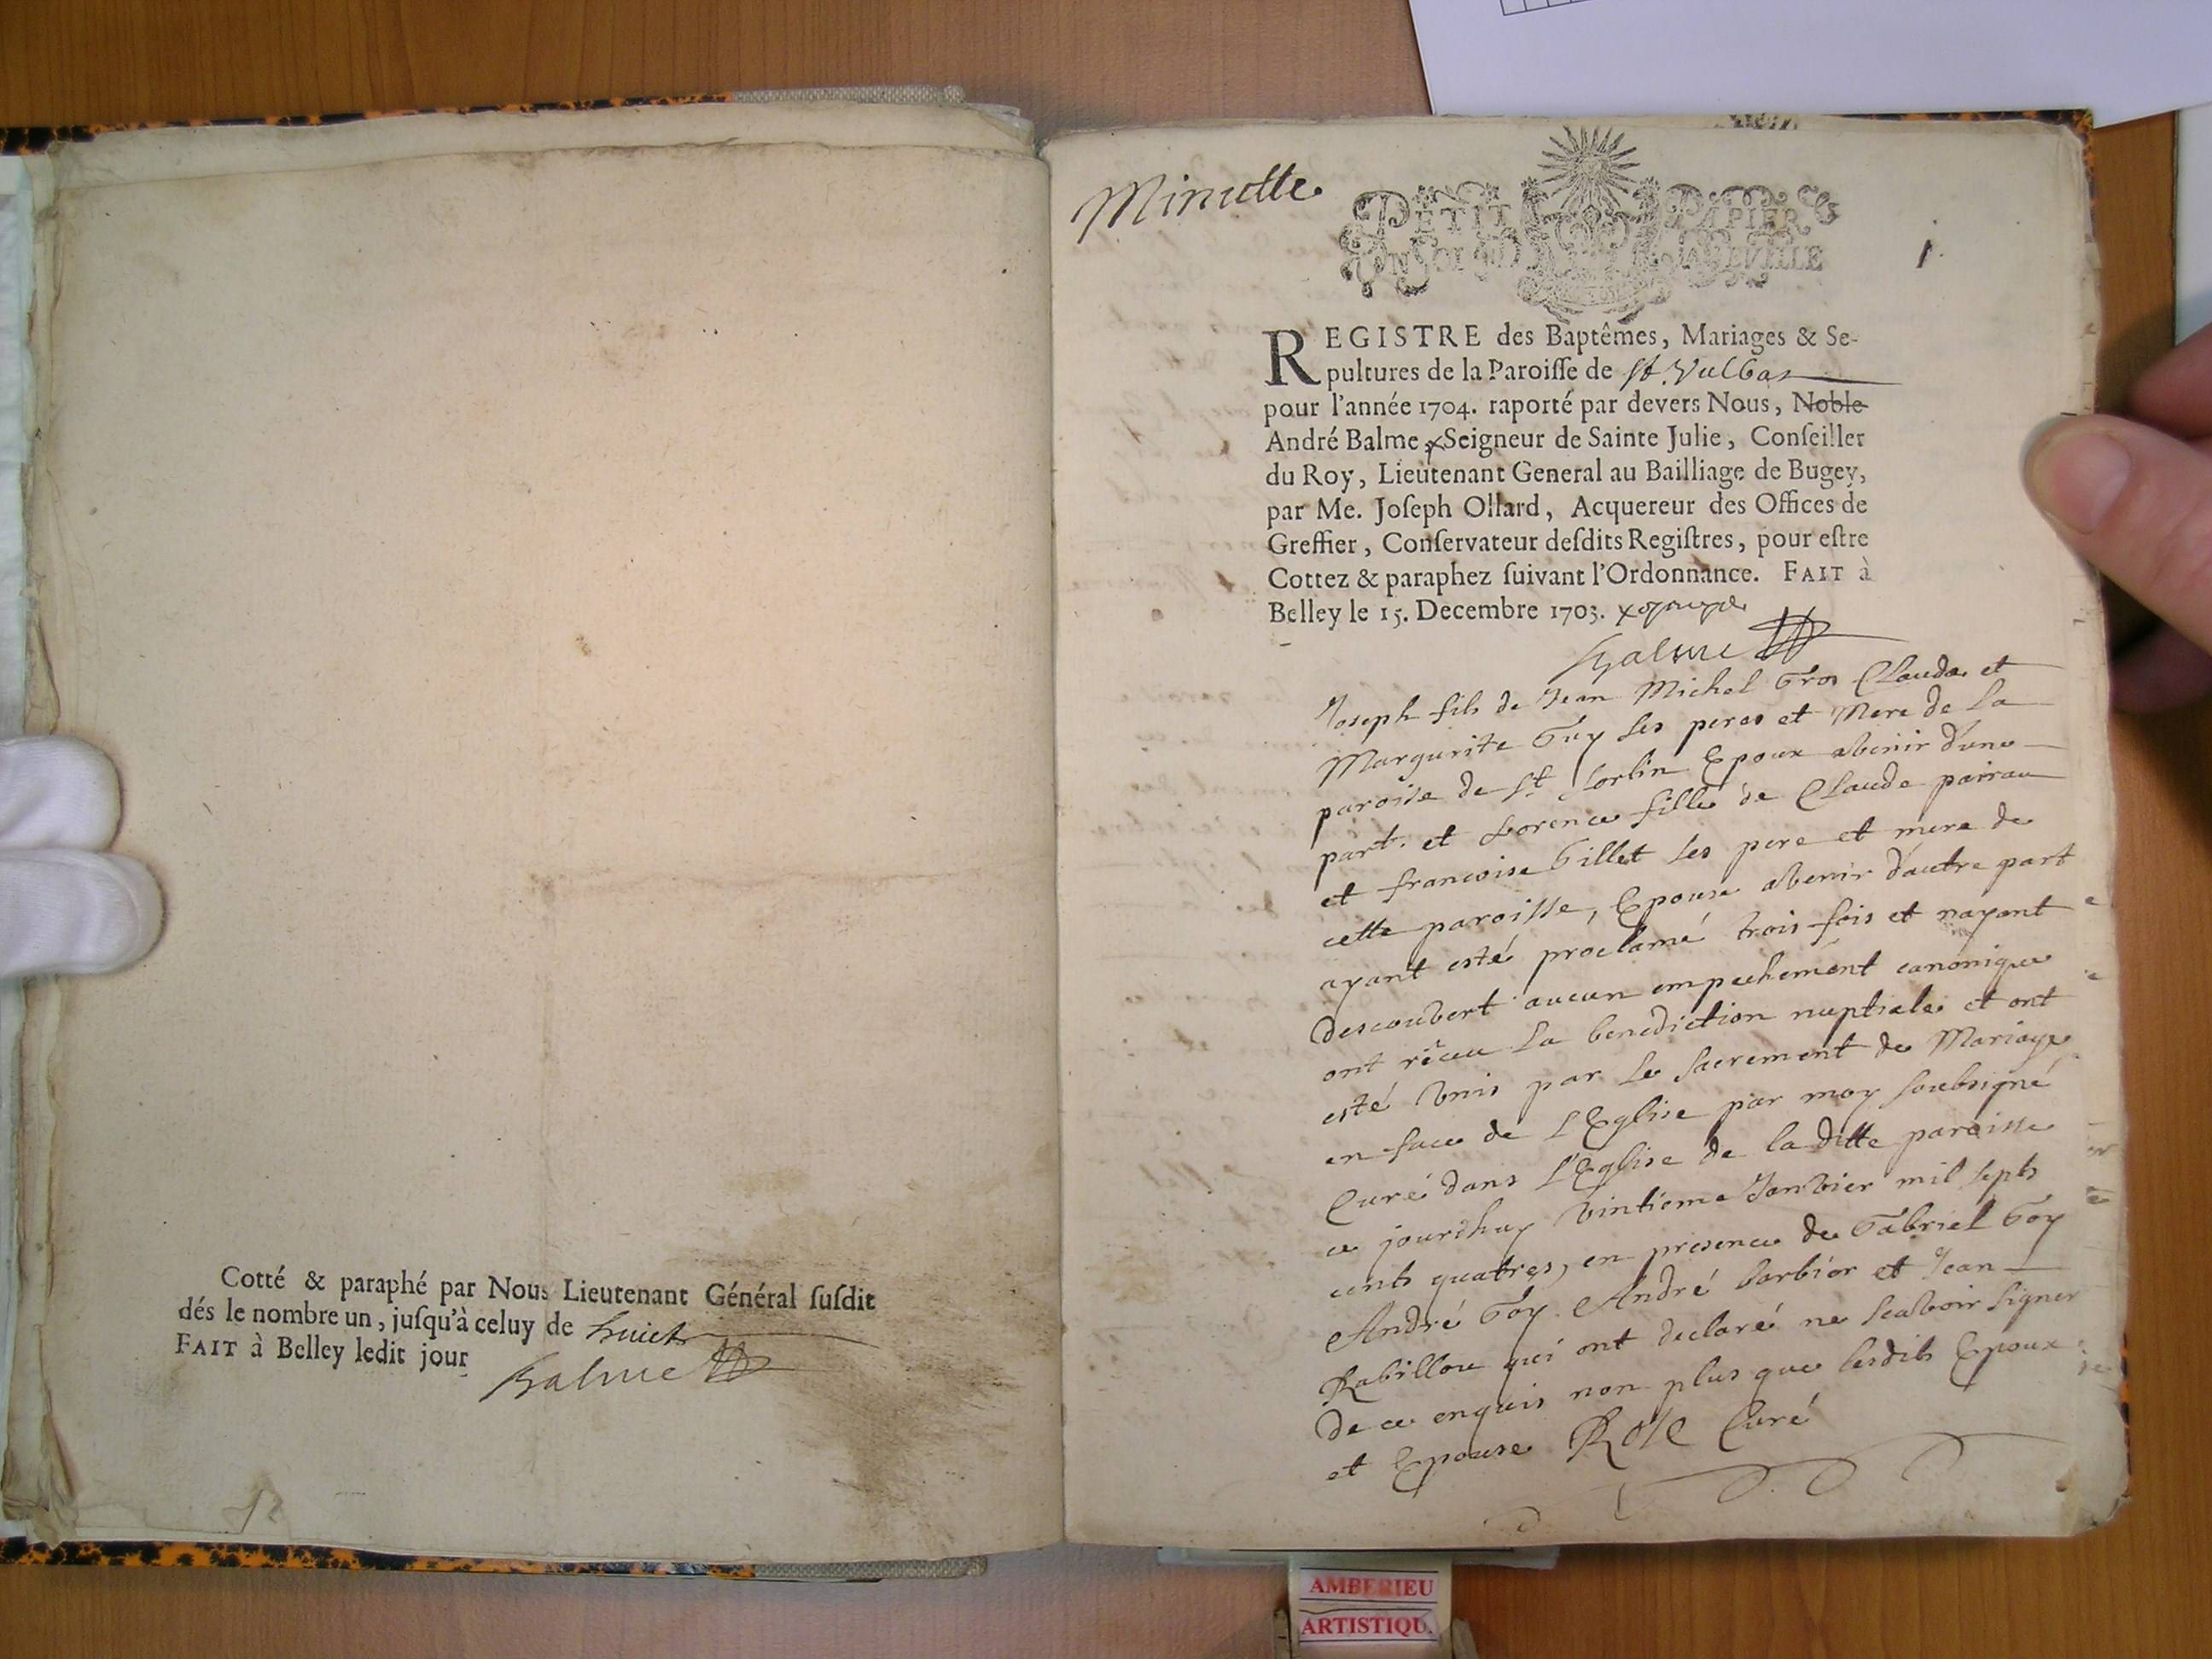 Cotté & paraphé par Nous Lieutenant Général ſuſdit
dés le nombre un, juſqu'à celuy de huict
FAIT à Belley ledit jour
Balme
Minutte
PETIT PAPIER
UN SOL LA FEUILLE
1.
REGISTRE des Baptêmes, Mariages & Se-
pultures de la Paroiſſe de St. Vulbas
pour l'année 1704. raporté par devers Nous, Noble
André Balme x Seigneur de Sainte Julie, Conſeiller
du Roy, Lieutenant General au Bailliage de Bugey,
par Me. Joſeph Ollard, Acquereur des Offices de
Greffier, Conſervateur deſdits Regiſtres, pour eſtre
Cottez & paraphez ſuivant l'Ordonnance. FAIT à
Belley le 15. Decembre 1703. x
Balme
Joseph fils de Jean Michel Gros Claude et
Margurite Guy ses peres et Mere de la
paroisse de St Sorbin Epoux avenir d'une
part. et Lorence fille de Claude pairau
et francoise Gillet ses pere et mere de
cette paroisse, Epouse avenir d'autre part
ayant esté proclamé trois fois et nayant
descouvert aucun empechement canonique
ont rêceu la benediction nuptiale et ont
esté vnis par le sacrement de Mariage
en face de L'Eglise par moy soubsigné
Curé dans l'Eglise de la ditte paroisse
ce jourdhuy vintieme Janvier mil septs
cents quatres, en presence de Gabriel Goy
André Goy. André barbier et Jean
Rabillou qui ont declaré ne scavoir signer
de ce enquis non plus que lesdits Epoux
et Epouse Rose Curé
AMBERIEU
ARTISTIQU